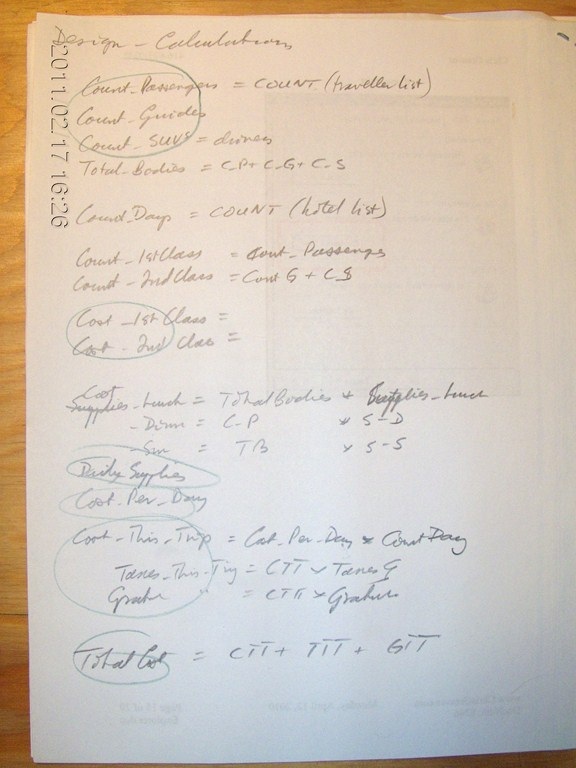 Design - Calculations
2011.02.17 16:26
Count_Passengers = COUNT (traveller list)
Count_Guides
Count_SUVs = drivers
Total_Bodies = C_P + C_G + C_S
Count_Days = COUNT (hotel list)
Count_1stClass = Count_Passenges
Count_2ndClass = Cont G + C_S
Cost_1stClass =
Cost_2nd Class =
Cost
Supplies_Lunch = TotalBodies * Supplies_Lunch
- Dinn = C-P * S-D
- Sn = TB * S-S
Daily Supplies
Cost_Per_Day
Cost_This_Trip = Cost_Per_Day * Count Day
Taxes_This_Trip = CTT * Taxes G
= CTT *
Total Cost = CTT + TTT + GTT